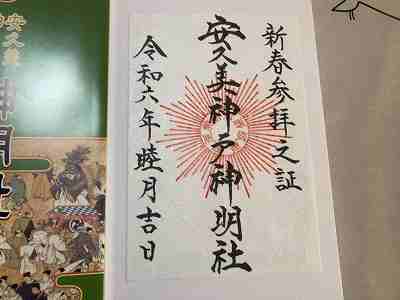 新春参拝之証
安久美神戸神明社
令和六年睦月吉日
安久美
神明社